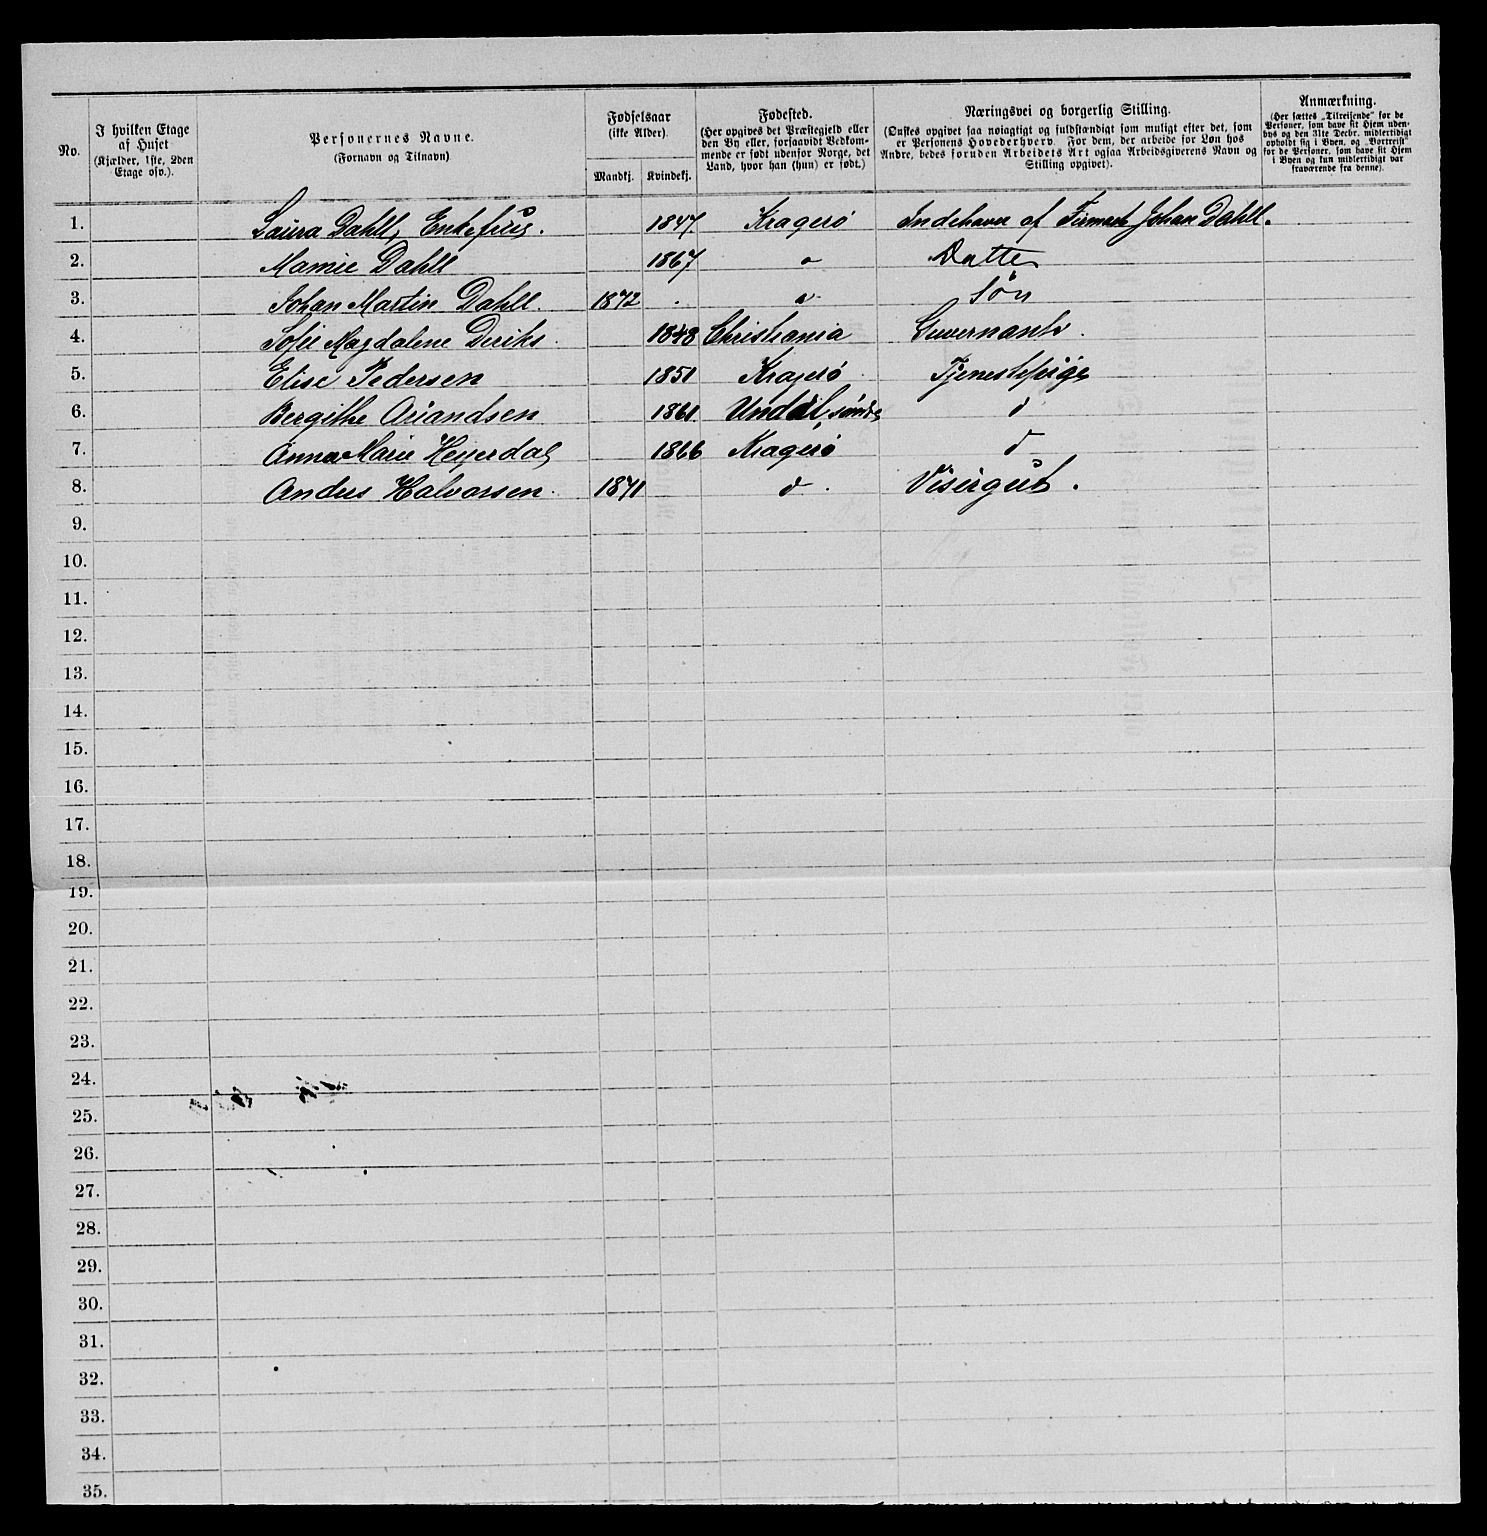 No. | I hvilken Etage af Huset (Kjælder, 1ste, 2den Etage osv.). | Personernes Navne. (Fornavn og Tilnavn) | Fødselsaar (ikke Alder). Mandkj. | Kvindekj. | Fødested. (Her opgives det Præstegjeld eller den By eller, forsaavidt Vedkommende er født udenfor Norge, det Land, hvor han (hun) er født.) | Næringsvei og borgerlig Stilling. (Ønskes opgivet saa nøiagtigt og fuldstændigt som muligt efter det, som er Personens Hovederhverv. For dem, der arbeide for Løn hos Andre, bedes foruden Arbeidets Art ogsaa Arbeidsgiverens Navn og Stilling opgivet). | Anmærkning. (Her sættes „Tilreisende" for de Personer, som have sit Hjem udenbys og den 31te Decbr. midlertidigt opholdt sig i Byen, og „Bortreist" for de Personer, som have sit Hjem i Byen og kun midlertidigt var fraværende fra denne).
1. Laura Dahll, Enkefrue. 1847 Kragerø Indehaver af Firmaet Johan Dahll.
2. Mamie Dahll 1867 " Datter
3. Johan Martin Dahll. 1872 " Søn
4. Sofie Magdalene Deriks. 1848 Christiania Guvernante.
5. Elise Pedersen 1851 Kragerø Tjenestepige
6. Bergithe Ariandsen 1861 Undal, søndre d
7. Anna Marie Heyerdal 1866 Kragerø d
8. Anders Halvorsen. 1871 d. Visergut.
9.
10.
11.
12.
13.
14.
15.
16.
17.
18.
19.
20.
21.
22.
23.
24.
25.
26.
27.
28.
29.
30.
31.
32.
33.
34.
35.